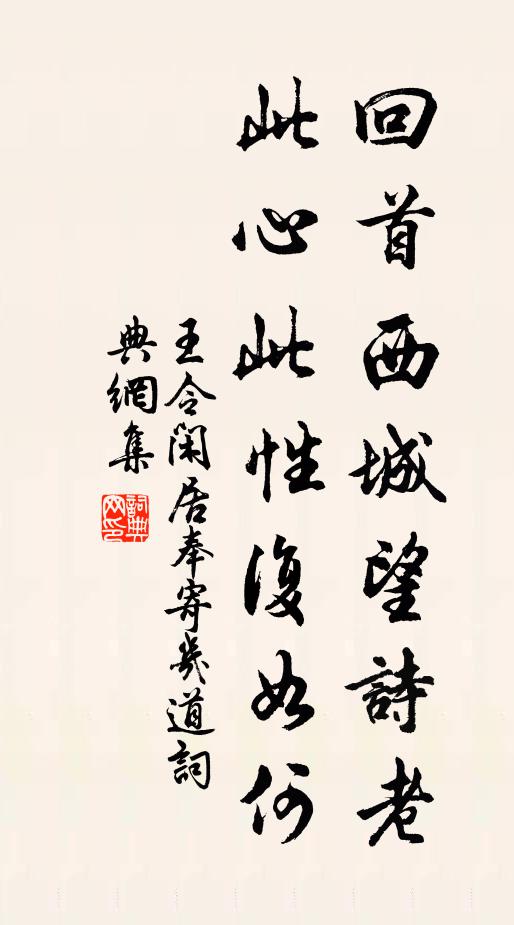 回首西城望詩老
此心此性復如何
王令閑居奉寄幾道詞
典網集
詞典
网印